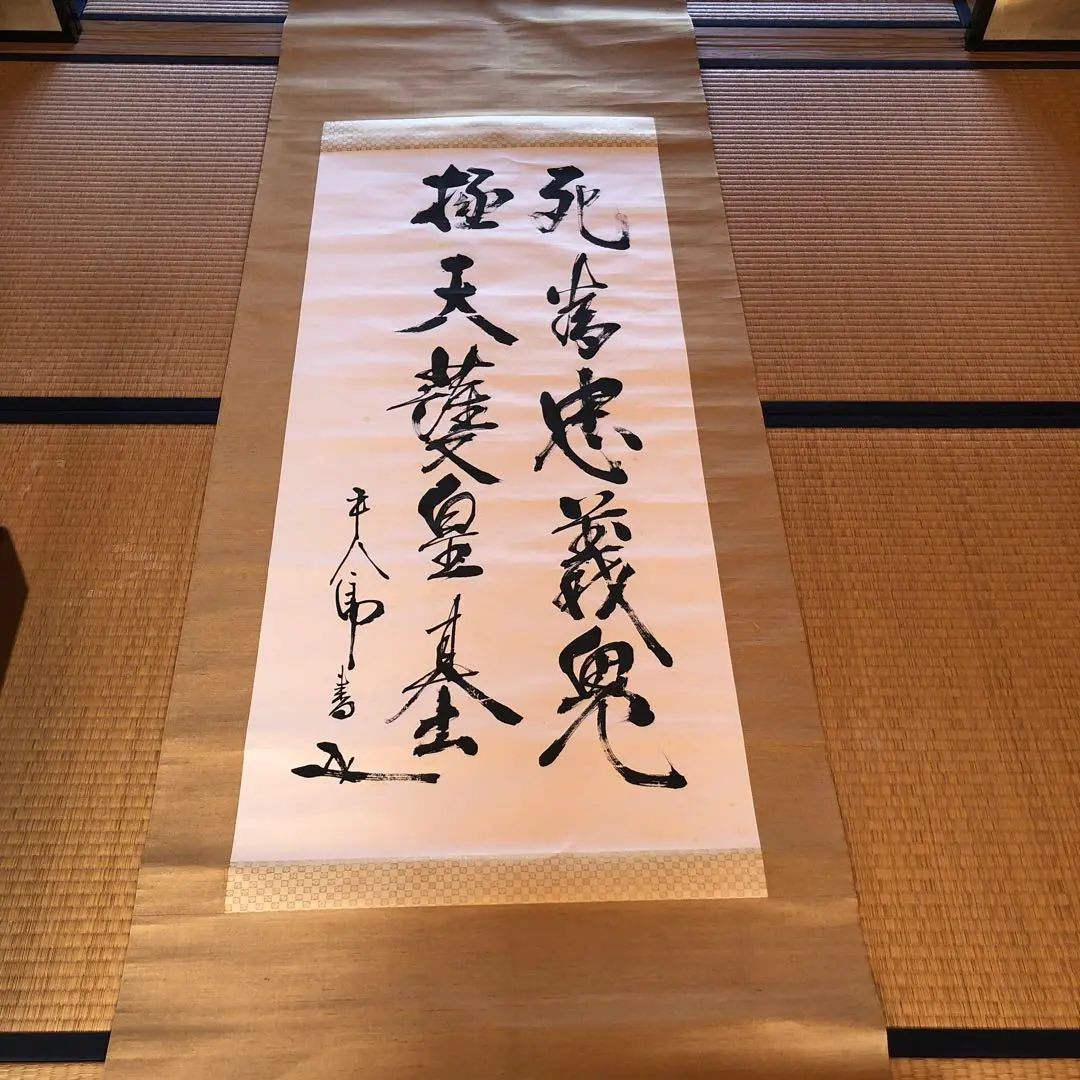 死為忠義鬼
極天護皇基
平八郎書